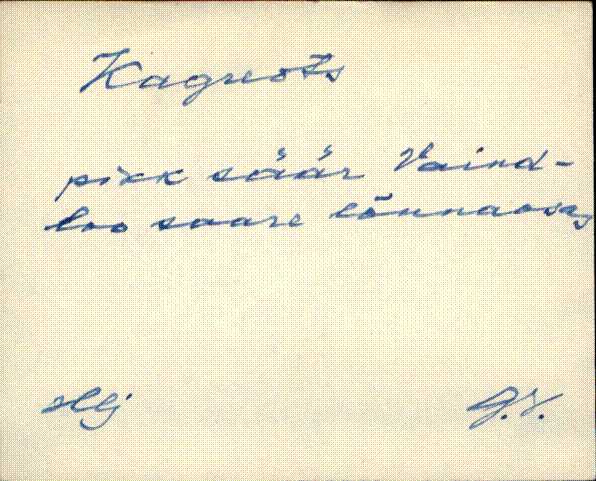 Kagreots
pikk säär Vaind-
loo saare lõunaosas
Hlj
G.V.